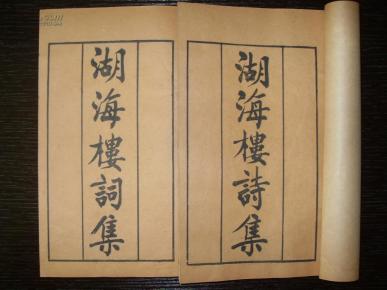 湖海樓詩集
湖海樓詞集